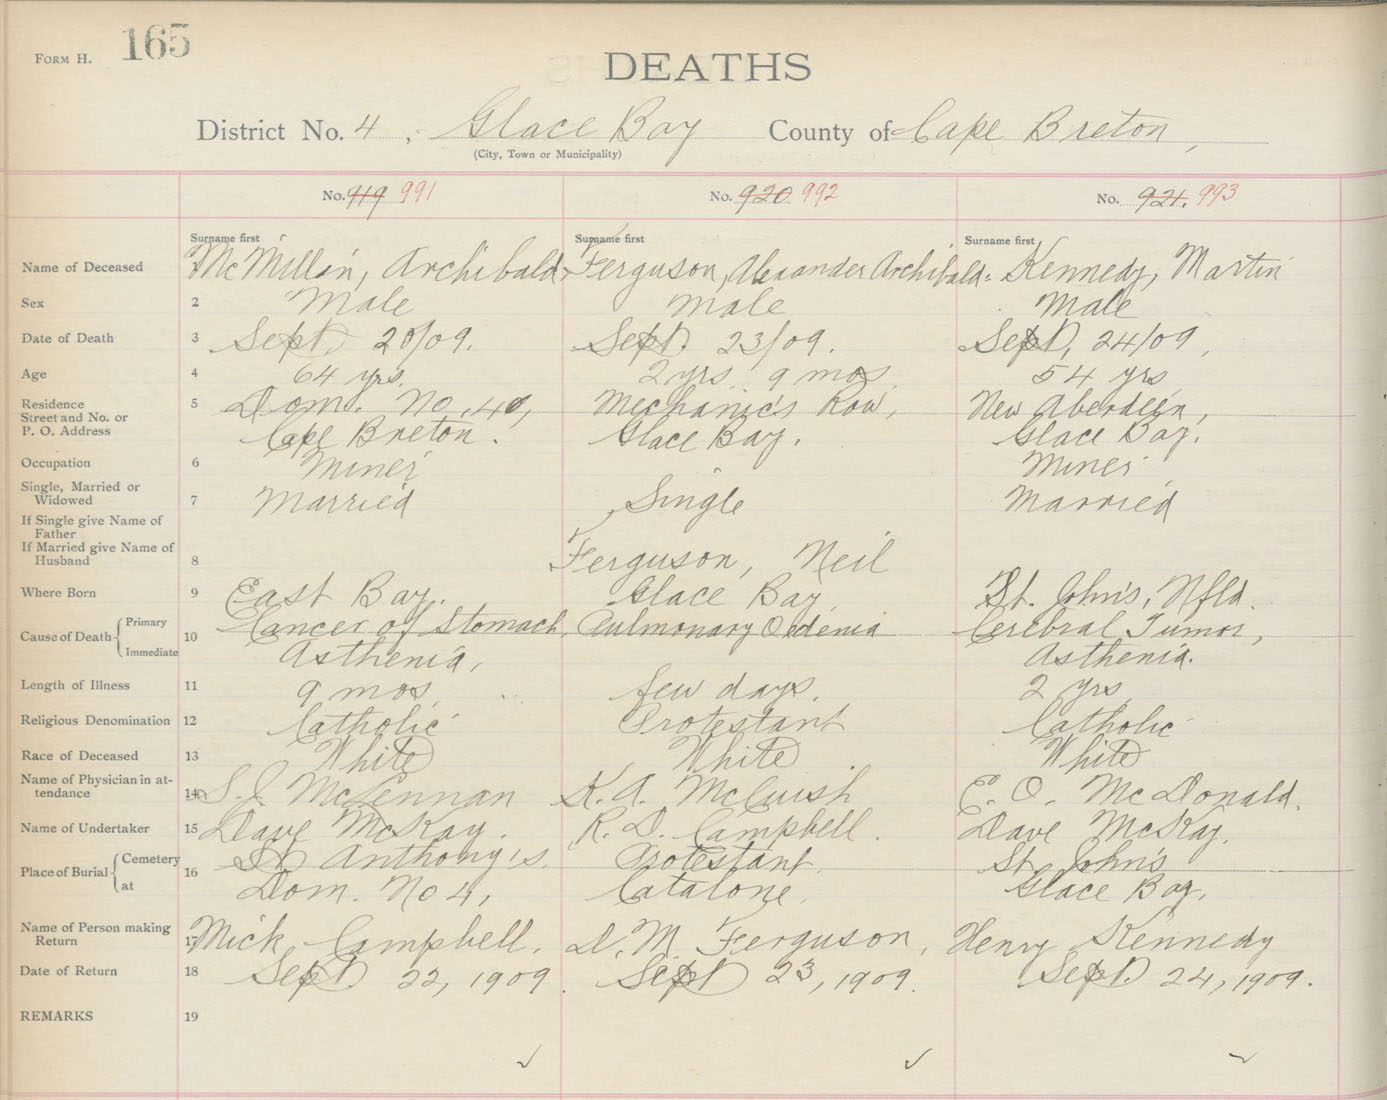 FORM H. 165
DEATHS
District No. 4, Glace Bay County of Cape Breton,
(City, Town or Municipality)
No. 919 991 No. 920 992 No. 921. 993
Surname first Surname first Surname first
Name of Deceased McMillan, Archibald Ferguson, Alexander Archibald Kennedy, Martin
Sex 2 Male Male Male
Date of Death 3 Sept. 20/09. Sept. 23/09. Sept. 24/09,
Age 4 64 yrs. 2 yrs. 9 mos. 54 yrs
Residence 5 Dom. No. 4, Mechanic's Row, New Aberdeen,
Street and No. or
P. O. Address Cape Breton. Glace Bay. Glace Bay.
Occupation 6 Miner Miner
Single, Married or
Widowed 7 Married Single Married
If Single give Name of
Father
If Married give Name of
Husband 8 Ferguson, Neil
Where Born 9 East Bay. Glace Bay St. John's, Nfld.
Cause of Death Primary 10 Cancer of Stomach, Pulmonary Oedenia Cerebral Tumor,
Immediate Asthenia, Asthenia.
Length of Illness 11 9 mos few days. 2 yrs
Religious Denomination 12 Catholic Protestant Catholic
Race of Deceased 13 White White White
Name of Physician in at-
tendance 14 S. J. McLennan K. A. McCuish E. O. McDonald.
Name of Undertaker 15 Dave McKay. R. D. Campbell. Dave McKay.
Place of Burial Cemetery 16 St Anthony's. Protestant St. John's
at Dom. No 4, Catalone. Glace Bay.
Name of Person making
Return 17 Mick Campbell. D. M. Ferguson, Henry Kennedy
Date of Return 18 Sept. 22, 1909. Sept 23, 1909. Sept. 24, 1909.
REMARKS 19